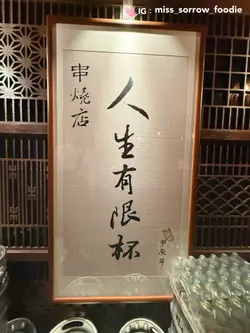 IG : miss_sorrow_foodie
串燒店
人生有限杯
甲辰年